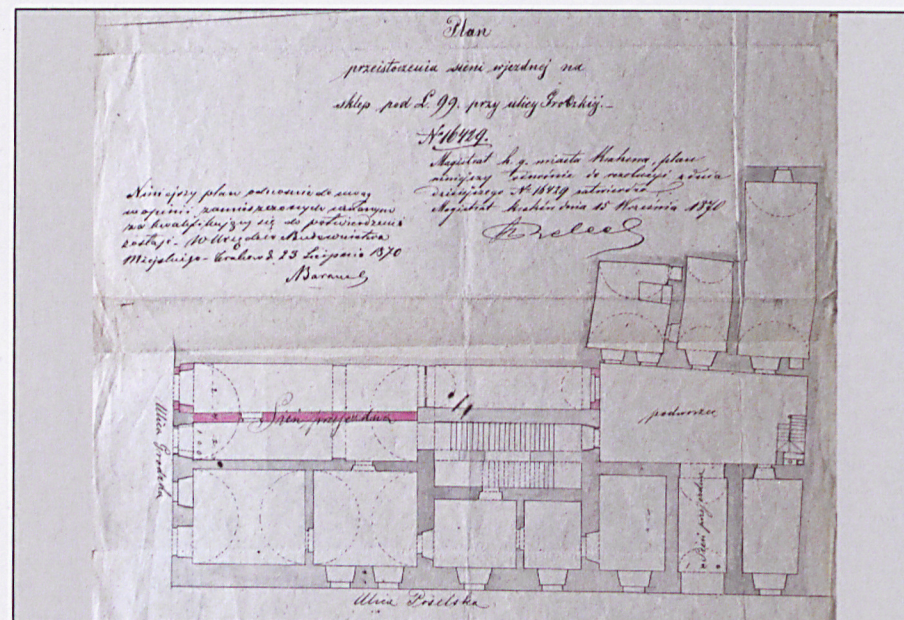 Plan
przeistoczenia sieni wjezdnej na
sklep pod L. 99. przy ulicy Grodzkiej.
N° 16429.
Magistrat k. g. miasta Krakowa, plan
niniejszy odnośnie do rezolucyi z dnia
dzisiejszego N° 16429 zatwierdza
Magistrat Kraków dnia 15 Września 1870
Niniejszy plan
zakwalifikujący się do potwierdzenia
zostaje. W Urzędzie Budownictwa
Miejskiego Kraków d. 23 Sierpnia 1870
Ulica Grodzka
Sień przejezdna
podworzec
Sień przejezdna
Ulica Poselska